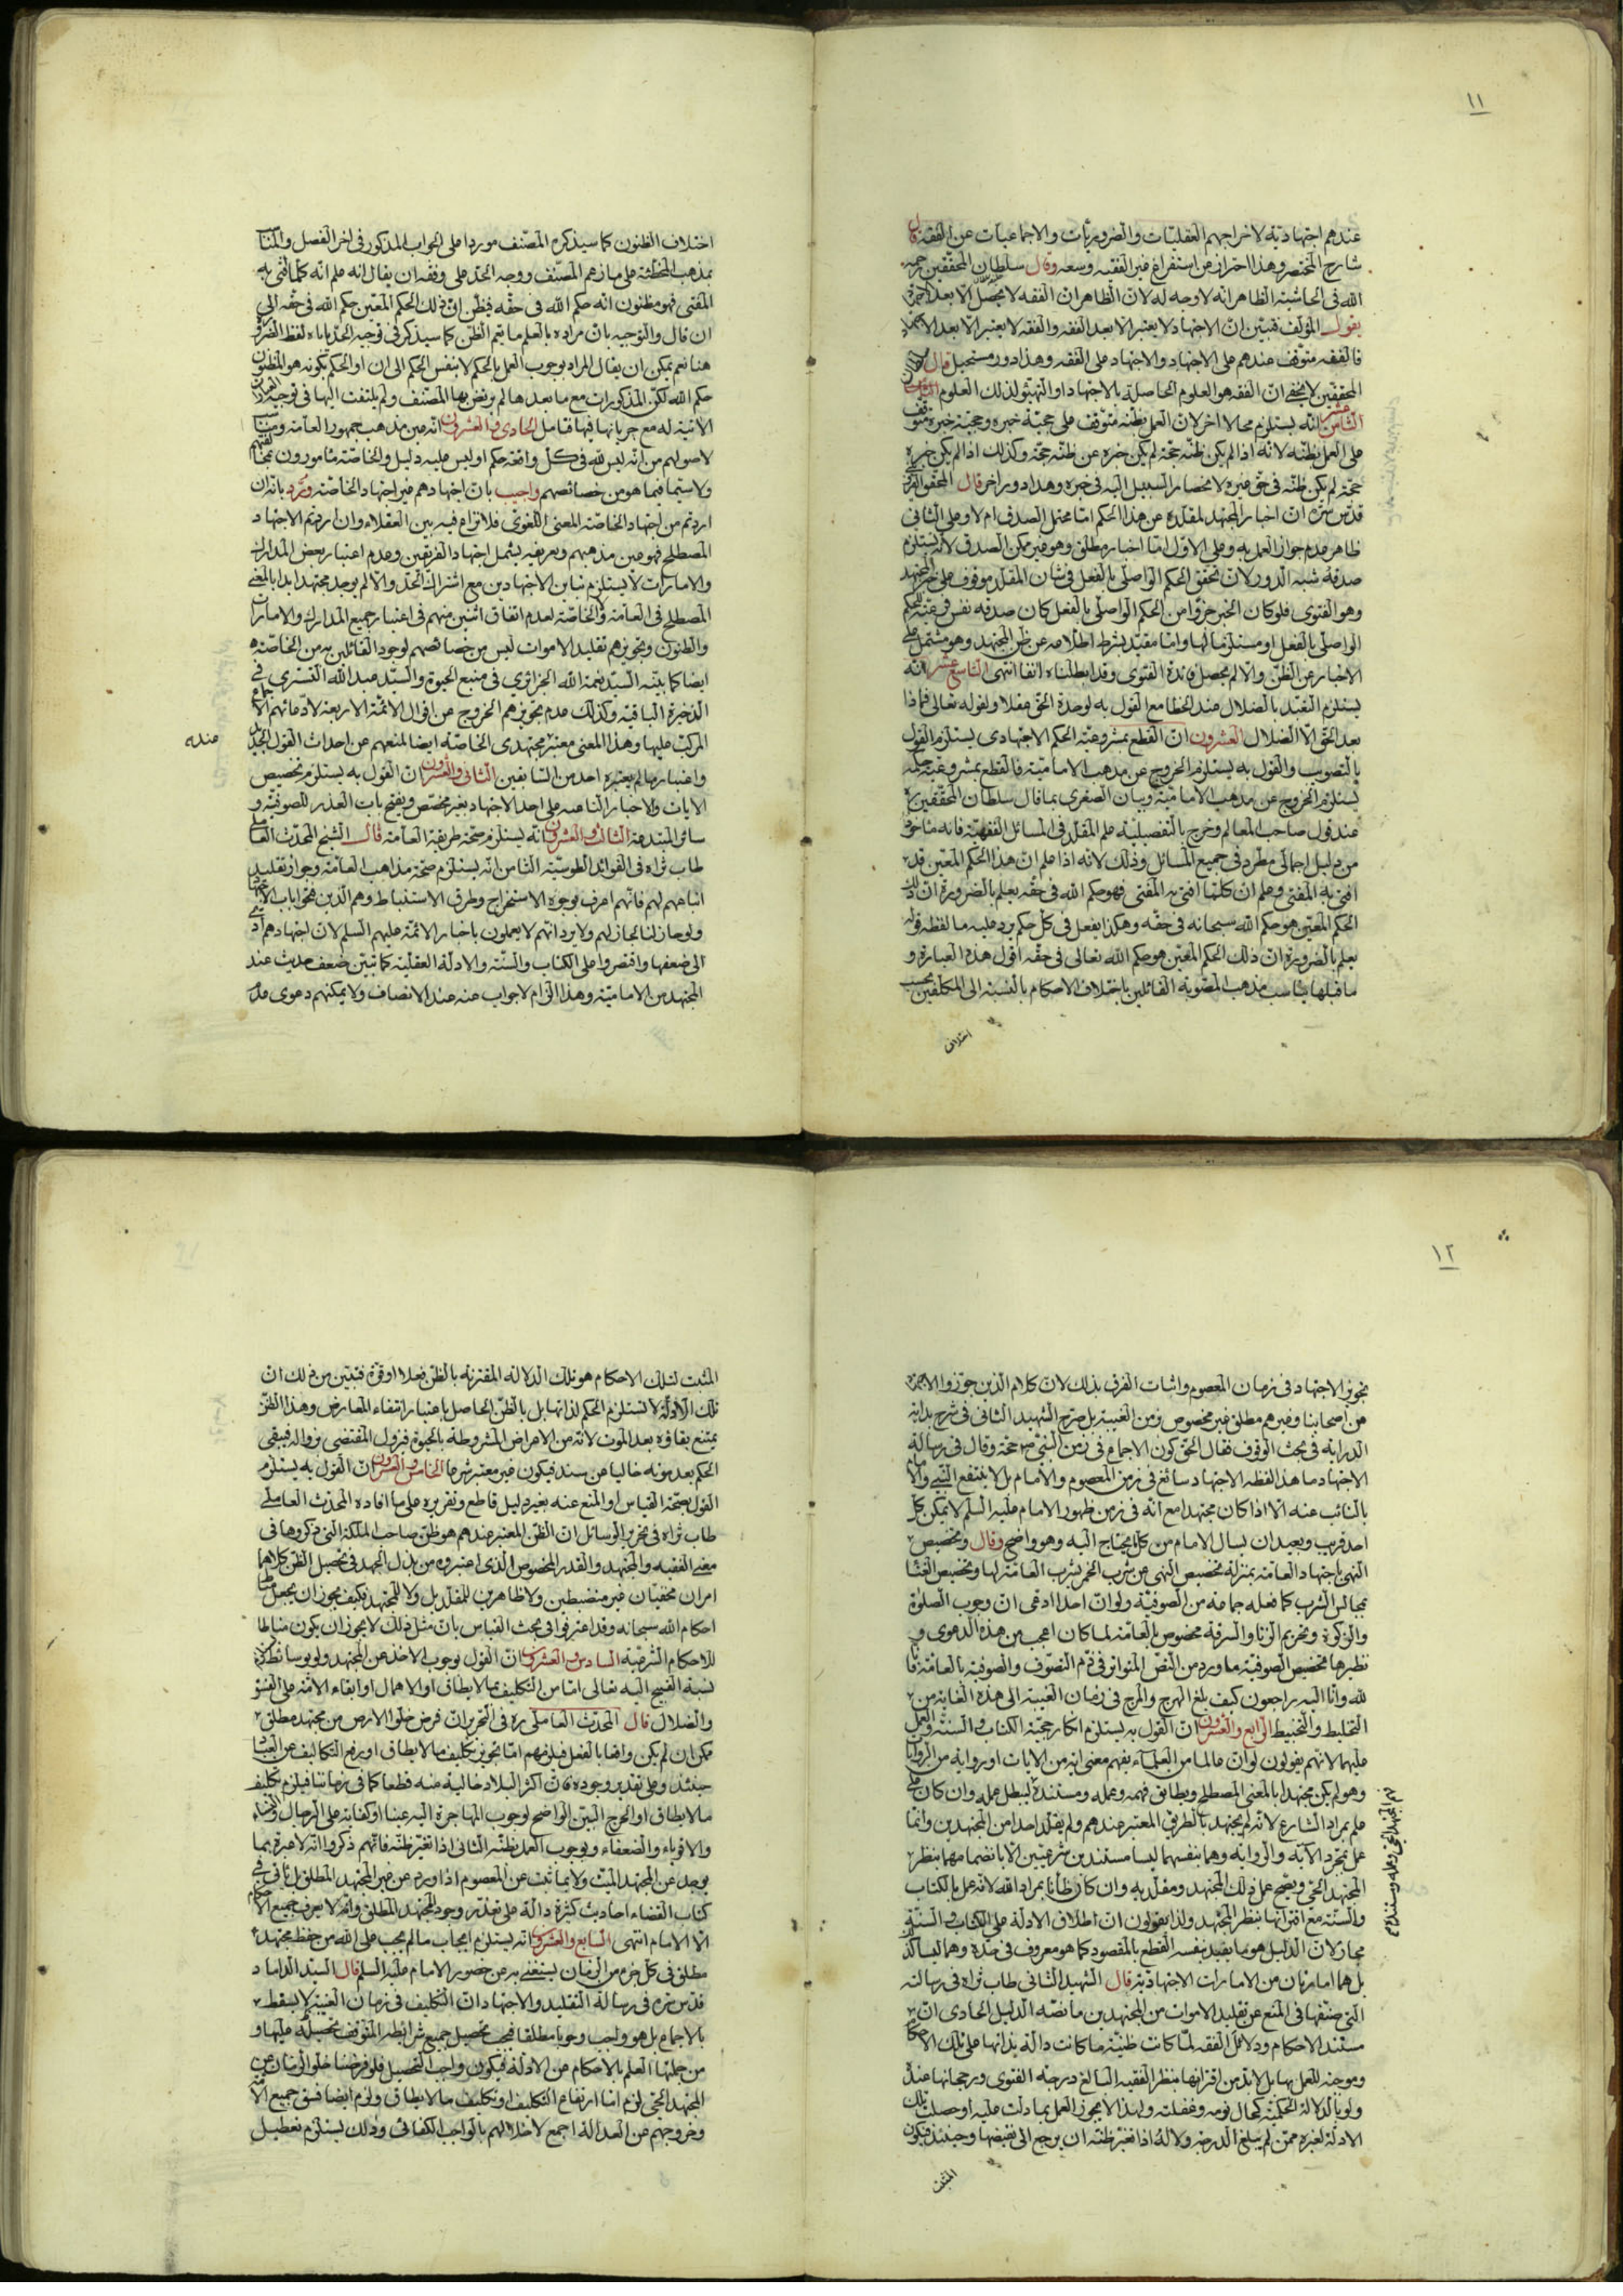 ١١
عندهم اجتهادية لاخراجهم العقليات والضروريات والاجماعيات عن الفقه قال
شارح المختصر وهذا احتراز من استفراغ غير الفقيه وسعه وقال سلطان المحققين رحمه
الله فى الحاشية الظاهر انه لا وجه له لان الظاهر ان الفقه لا يحصل الا بعد الاجتهاد
يقول المؤلف فتبين ان الاجتهاد لا يعتبر الا بعد الفقه والفقه لا يعتبر الا بعد الاجتهاد
فالفقه متوقف عندهم على الاجتهاد والاجتهاد على الفقه وهذا دور مستحيل قال سلطان
المحققين لا يخفى ان الفقه هو العلوم الحاصلة بالاجتهاد او التهيؤ لذلك العلوم
الثامن عشر انه يستلزم محالا اخر لان العمل بظنه متوقف على حجية خبره وحجية خبره متوقف
على العمل بظنه لانه اذا لم يكن ظنه حجة لم يكن خبره عن ظنه حجة وكذلك اذا لم يكن خبره
حجة لم يكن ظنه فى حق غيره لانحصار السبيل اليه فى خبره وهذا دور اخر قال المحقق
قدس سره ان اخبار المجتهد لمقلده عن هذا الحكم اما محتمل الصدق ام لا وعلى الثانى
ظاهر عدم جواز العمل به وعلى الاول اما اخبار مطلق وهو غير ممكن الصدق لانه يستلزم
صدقه شبه الدور لان تحقق الحكم الواصلى بالفعل فى شان المقلد موقوف على خبر المجتهد
وهو الفتوى فلو كان الخبر خبرا من الحكم الواصلى بالفعل كان صدقه نفس
الواصلى بالفعل او مستلزما لها واما مقيد بشرط اطلاعه عن ظن المجتهد وهو مشتمل على
الاخبار عن الظن والا لم يحصل فائدة الفتوى وقد ابطلناه انفا انتهى التاسع عشر انه
يستلزم التقيد بالضلال عند الخطا مع القول به لوحدة الحق عقلا ولقوله تعالى فماذا
بعد الحق الا الضلال العشرون ان القطع بمشروعية الحكم الاجتهادى يستلزم القول
بالتصويب والقول به يستلزم الخروج عن مذهب الامامية فالقطع بمشروعية حكمه
يستلزم الخروج عن مذهب الامامية وبيان الصغرى بما قال سلطان المحققين ره
عند قول صاحب المعالم وخرج بالتفصيلية علم المقلد فى المسائل الفقهية فانه ماخوذ
من دليل اجمالى مطرد فى جميع المسائل وذلك لانه اذا علم ان هذا الحكم المعين قد
افتى به المفتى وعلم ان كلما افتى به المفتى فهو حكم الله فى حقه يعلم بالضرورة ان ذلك
الحكم المعين هو حكم الله سبحانه فى حقه وهكذا يفعل فى كل حكم يرد عليه ما لفظه قوله
يعلم بالضرورة ان ذلك الحكم المعين هو حكم الله تعالى فى حقه اقول هذه العبارة و
ما قبلها يناسب مذهب المصوبة القائلين باختلاف الاحكام بالنسبة الى المكلفين بحسب
اختلاف
اختلاف الظنون كما سيذكره المصنف موردا على الجواب المذكور فى اخر الفصل والمناسب
بمذهب المخطئة على ما زعم المصنف ووجه الحد على وفقه ان يقال انه علم انه كلما افتى به
المفتى فهو مظنون انه حكم الله فى حقه فيظن ان ذلك الحكم المعين حكم الله فى حقه الى
ان قال والتوجيه بان مراده بالعلم ما يعم الظن كما سيذكر فى توجيه الحد ياباه لفظ الضرورة
هنا نعم يمكن ان يقال المراد بوجوب العمل بالحكم لا بنفس الحكم الى ان او الحكم بكونه هو المظنون
حكم الله لكن المذكورات مع ما بعدها لم يرض بها المصنف ولم يلتفت اليها فى توجيه
الاتية له مع جريانها فيها فتامل الحادى والعشرون انه عين مذهب جمهور العامة
لاصولهم من انه ليس لله فى كل واقعة حكم او ليس عليه دليل والخاصة مامورون بمخالفتهم
ولا سيما فيما هو من خصائصهم واجيب بان اجتهادهم غير اجتهاد الخاصة ورد بانه ان
اردتم من اجتهاد الخاصة المعنى اللغوى فلا نزاع فيه بين العقلاء وان اردتم الاجتهاد
المصطلح فهو عين مذهبهم وتعريفه يشمل اجتهاد الفريقين وعدم اعتبار بعض المدارك
والامارات لا يستلزم تباين الاجتهادين مع اشتراك الحد والا لم يوجد مجتهد ابدا بالمعنى
المصطلح فى العامة والخاصة لعدم اتفاق اثنين منهم فى اعتبار جميع المدارك والامارات
والظنون وتجويزهم تقليد الاموات ليس من خصائصهم لوجود القائلين به من الخاصة
ايضا كما بينه السيد نعمة الله الجزائرى فى منبع الحيوة والسيد عبد الله التسترى فى
الذخيرة الباقية وكذلك عدم تجويزهم الخروج عن اقوال الائمة الاربعة لادعائهم الاجماع
المركب عليها وهذا المعنى معتبر مجتهدى الخاصة ايضا لمنعهم عن احداث القول الجديد
عنده
واعتبار ما لم يعتبره احد من السابقين الثانى والعشرون ان القول به يستلزم تخصيص
الايات والاخبار الناهية على احد الاجتهاد بغير مخصص ويفتح باب العذر للصوفية و
سائر المبتدعة الثالث والعشرون انه يستلزم صحة طريقة العامة قال الشيخ المحدث العاملى
طاب ثراه فى الفوائد الطوسية الثامن انه يستلزم صحة مذاهب العامة وجواز تقليد
اتباعهم لهم فانهم اعرف بوجوه الاستخراج وطرق الاستنباط وهم الذين فتحوا باب
ولو جاز لنا لجاز لهم ولا يرد انهم لا يعملون باخبار الائمة عليهم السلم لان اجتهادهم ادى
الى ضعفها واقتصروا على الكتاب والسنة والادلة العقلية كما تبين ضعف حديث عند
المجتهد من الامامية وهذا الزام لا جواب عنه عند الانصاف ولا يمكنهم دعوى عدم
١٢
تجويز الاجتهاد فى زمان المعصوم واثبات الفرق بذلك لان كلام الذين جوزوا الاجتهاد
من اصحابنا وغيرهم مطلق غير مخصوص بزمن الغيبة بل صرح الشهيد الثانى فى شرح بداية
الدراية فى بحث الوقوف فقال الحق كون الاجماع فى زمن النبى ص حجة وقال فى رسالة
الاجتهاد ما هذا لفظه الاجتهاد سائغ فى زمن المعصوم والامام بل لا ينتفع النبى والامام
بالنائب عنه الا اذا كان مجتهدا مع انه فى زمن ظهور الامام عليه السلم لا يمكن كل
احد قريب وبعيد ان يسال الامام من كل ما يحتاج اليه وهو واضح وقال وتخصيص
النهى باجتهاد العامة بمنزلة تخصيص النهى عن شرب الخمر بشرب العامة لها وتخصيص الغناء
بمجالس الشرب كما فعله جماعة من الصوفية ولو ان احدا ادعى ان وجوب الصلوة
والزكوة وتحريم الزنا والسرقة مخصوص بالعامة لما كان اعجب من هذه الدعوى و
نظيرها تخصيص الصوفية ما ورد من النص المتواتر فى ذم التصوف والصوفية بالعامة فانا
لله وانا اليه راجعون كيف بلغ الهرج والمرج فى زمان الغيبة الى هذه الغاية من
التخليط والتخبيط الرابع والعشرون ان القول به يستلزم انكار حجية الكتاب والسنة والعمل
عليهما لانهم يقولون لو ان عالما من العلماء يفهم معنى اية من الايات او رواية من الروايات
وهو لم يكن مجتهدا بالمعنى المصطلح ويطابق فهمه وعمله ومستنده ليبطل عمله وان كان على
علم بمراد الشارع لانه لم يجتهد بالطريق المعتبر عندهم ولم يقلد احدا من المجتهدين وانما
عمل بمجرد الاية والرواية وهما بنفسهما ليسا مستندين شرعيين الا بانضمامهما بنظر
المجتهد الحى ويصح عمل ذلك المجتهد ومقلديه وان كان ظانا بمراد الله لانه عمل بالكتاب
والسنة مع اقترانها بنظر المجتهد ولذا يقولون ان اطلاق الادلة على الكتاب والسنة
مجاز لان الدليل هو ما يفيد بنفسه القطع بالمقصود كما هو معروف فى حده وهما ليسا كذلك
بل هما امارتان من الامارات الاجتهادية قال الشهيد الثانى طاب ثراه فى رسالته
التى صنفها فى المنع عن تقليد الاموات من المجتهدين ما نصه الدليل الحادى ان
مستند الاحكام ودلائل الفقه لما كانت ظنية ما كانت دالة بذاتها على تلك الاحكام
وموجبة للعمل بها بل لا بد من اقترانها بنظر الفقيه البالغ درجة الفتوى ورجحانها عنده
ولو بالدلالة الحكمية كحال نومه وغفلته ولهذا لا يجوز العمل بما دلت عليه او حصلت تلك
الادلة لغيره ممن لم يبلغ الدرجة ولا له اذا تغير ظنه ان يرجع الى نقيضها وحينئذ فيكون
المثبت
المثبت لتلك الاحكام هو تلك الدلالة المقترنة بالظن فعلا او قوة فتبين من ذلك ان
تلك الادلة لا تستلزم الحكم لذاتها بل بالظن الحاصل باعتبار انتفاء المعارض وهذا الظن
يمتنع بقاؤه بعد الموت لانه من الاعراض المشروطة بالحيوة فزول المقتضى بزواله فيبقى
الحكم بعد موته خاليا من سند فيكون غير معتبر شرعا الخامس والعشرون ان القول به يستلزم
القول بصحة القياس او المنع عنه بغير دليل قاطع وتقريره على ما افاده المحدث العاملى
طاب ثراه فى تحرير الوسائل ان الظن المعتبر عندهم هو ظن صاحب الملكة التى ذكروها فى
معنى الفقيه والمجتهد والقدر المخصوص الذى اعتبروه من بذل الجهد فى تحصيل الظن كلاهما
امران مخفيان غير منضبطين ولا ظاهرين للمقلد بل ولا للمجتهد فكيف يجوز ان يجعل مناط
احكام الله سبحانه وقد اعترفوا فى بحث القياس بان مثل ذلك لا يجوز ان يكون مناطا
للاحكام الشرعية السادس والعشرون ان القول بوجوب الاخذ عن المجتهد ولو بوسائط
نسبة القبيح اليه تعالى اما من التكليف بما لا يطاق او الاهمال او ابقاء الامة على الفسق
والضلال قال المحدث العاملى ره فى التحرير ان فرض خلو الارض من مجتهد مطلق
ممكن ان لم يكن واقعا بالفعل فيلزمهم اما تجويز تكليف ما لا يطاق او رفع التكاليف عن العباد
حينئذ وعلى تقدير وجوده فان اكثر البلاد خالية منه قطعا كما فى زماننا فيلزم تكليف
ما لا يطاق او الحرج البين الواضح لوجوب المهاجرة اليه عينا او كفاية على الرجال والنساء
والاقوياء والضعفاء وبوجوب العمل بظنه الثانى اذا تغير ظنه فانهم ذكروا انه لا عبرة بما
يوجد عن المجتهد الميت ولا بما ثبت عن المعصوم اذا ورد عن غير المجتهد المطلق بل نافى فى
كتاب القضاء احاديث كثيرة دالة على تعذر وجود المجتهد المطلق وانه لا يعرف جميع الاحكام
الا الامام انتهى السابع والعشرون انه يستلزم ايجاب ما لم يجب على الله من حفظ مجتهد
مطلق فى كل جزء من الزمان يستغنى به عن حضور الامام عليه السلم قال السيد الداماد
قدس سره فى رسالة التقليد والاجتهاد ان التكليف فى زمان الغيبة لا يسقط
بالاجماع بل هو واجب وجوبا مطلقا فيجب تحصيل جميع شرائطه المتوقف تحصيله عليها و
من جملتها العلم بالاحكام من الادلة فيكون واجب التحصيل فلو فرضنا خلو الزمان عن
المجتهد الحى لزم اما ارتفاع التكليف او تكليف ما لا يطاق ولزم ايضا فسق جميع الامة
وخروجهم عن العدالة اجمع لاخلالهم بالواجب الكفائى وذلك يستلزم تعطيل